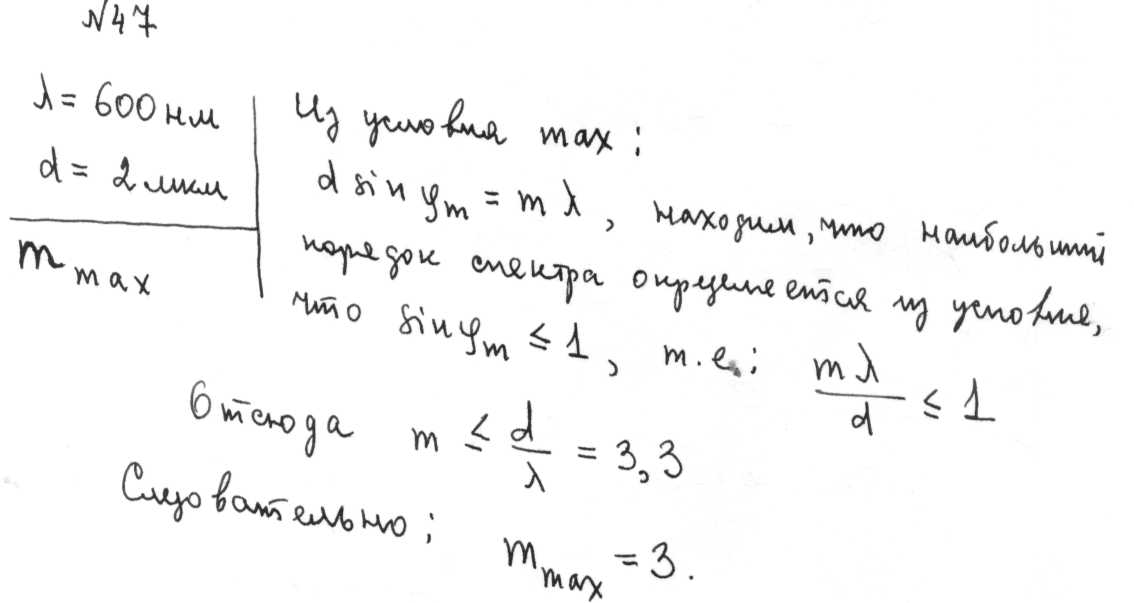 №47
λ = 600 нм
d = 2 мкм
m max
Из условия max:
d sin φm = m λ, находим, что наибольший
порядок спектра определяется из условия,
что sin φm ≤ 1, т.е.: mλ/d ≤ 1
Отсюда m ≤ d/λ = 3,3
Следовательно; m max = 3.